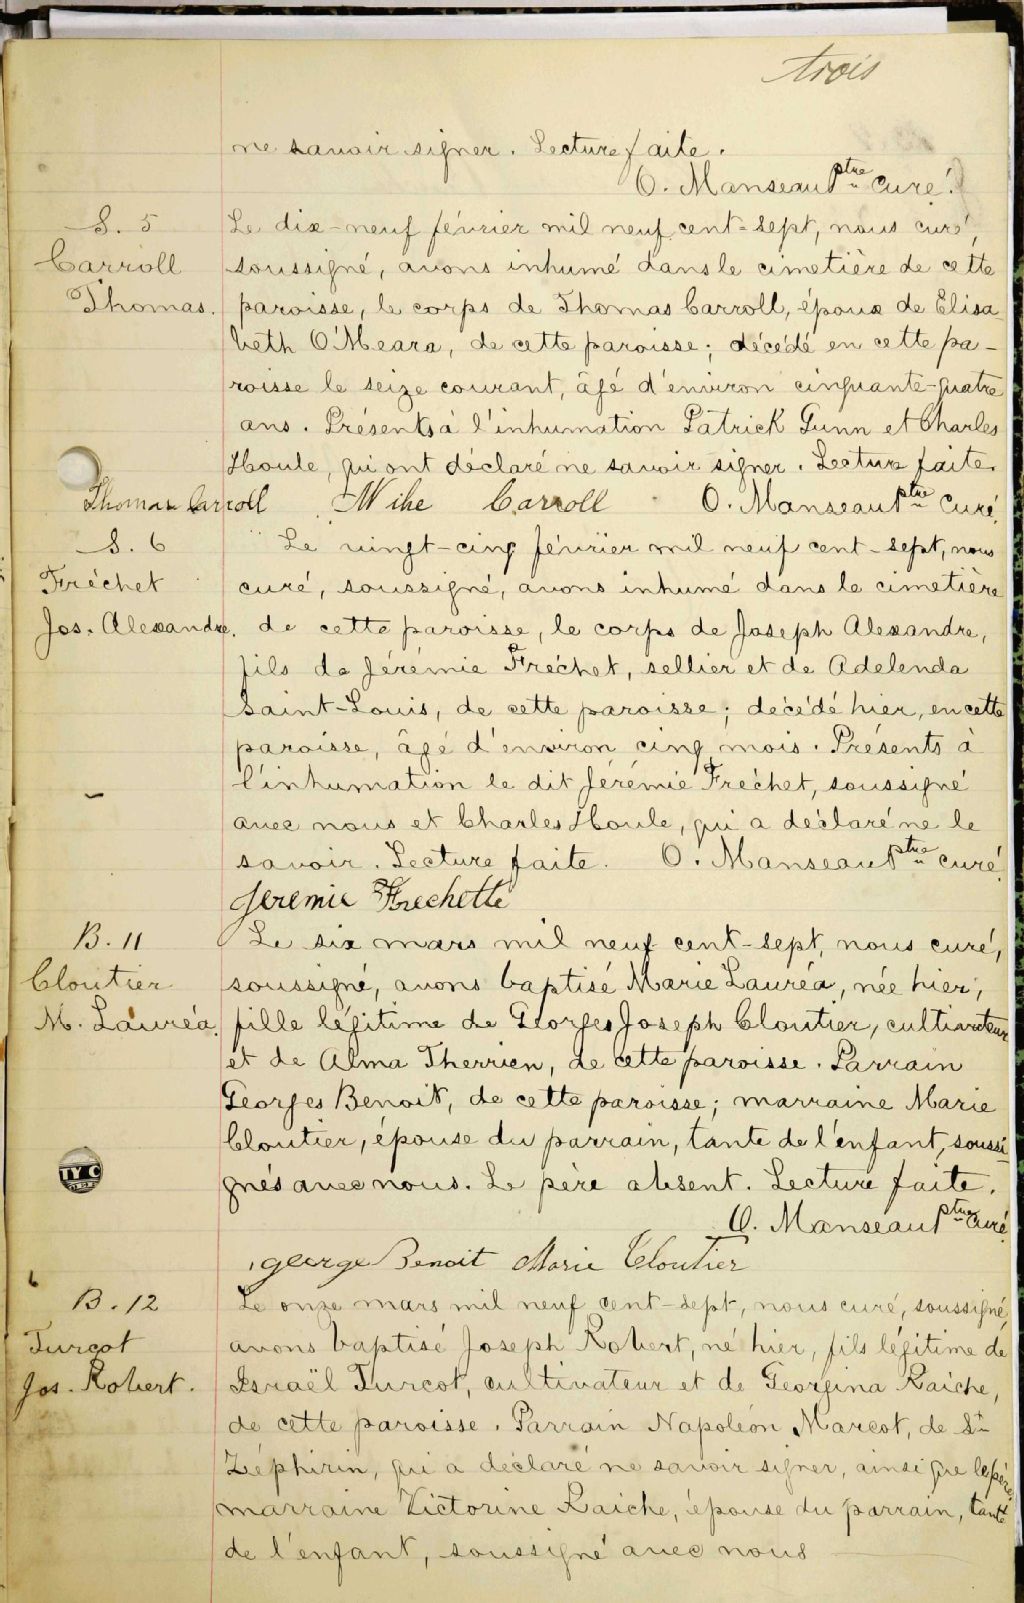 trois
ne savoir signer. Lecture faite.
O. Manseau Ptre curé.
S. 5
Carroll
Thomas.
Le dix-neuf février mil neuf cent-sept, nous curé,
soussigné, avons inhumé dans le cimetière de cette
paroisse, le corps de Thomas Carroll, époux de Elisa
beth O'Meara, de cette paroisse; décédé en cette pa-
roisse le seize courant, âgé d'environ cinquante-quatre
ans. Présents à l'inhumation Patrick Gunn et Charles
Houle, qui ont déclaré ne savoir signer. Lecture faite.
Thomas Carroll Mike Carroll O. Manseau Ptre Curé.
S. 6
Fréchet
Jos. Alexandre.
Le vingt-cinq février mil neuf cent-sept, nous
curé, soussigné, avons inhumé dans le cimetière
de cette paroisse, le corps de Joseph Alexandre,
fils de Jérémie Fréchet, sellier et de Adelenda
Saint-Louis, de cette paroisse; décédé hier, en cette
paroisse, âgé d'environ cinq mois. Présents à
l'inhumation le dit Jérémie Fréchet, soussigné
avec nous et Charles Houle, qui a déclaré ne le
savoir. Lecture faite. O. Manseau Ptre curé.
Jeremie Frechette
B. 11
Cloutier
M. Lauréa.
Le six mars mil neuf cent-sept, nous curé,
soussigné, avons baptisé Marie Lauréa, née hier,
fille légitime de Georges Joseph Cloutier, cultivateur
et de Alma Therrien, de cette paroisse. Parrain
Georges Benoit, de cette paroisse; marraine Marie
Cloutier, épouse du parrain, tante de l'enfant, soussi-
gnés avec nous. Le père absent. Lecture faite.
O. Manseau Ptre Curé
george Benoit Marie Cloutier
B. 12
Turcot
Jos. Robert.
Le onze mars mil neuf cent-sept, nous curé, soussigné,
avons baptisé Joseph Robert, né hier, fils légitime de
Israël Turcot, cultivateur et de Georgina Raiche,
de cette paroisse. Parrain Napoléon Marcot, de St
Zéphirin, qui a déclaré ne savoir signer, ainsi que le père;
marraine Victorine Raiche, épouse du parrain, tante
de l'enfant, soussigné avec nous
TY C